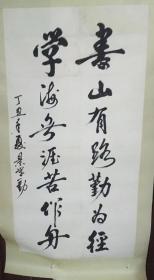 书山有路勤为径
学海无涯苦作舟
丁丑年夏景学勤